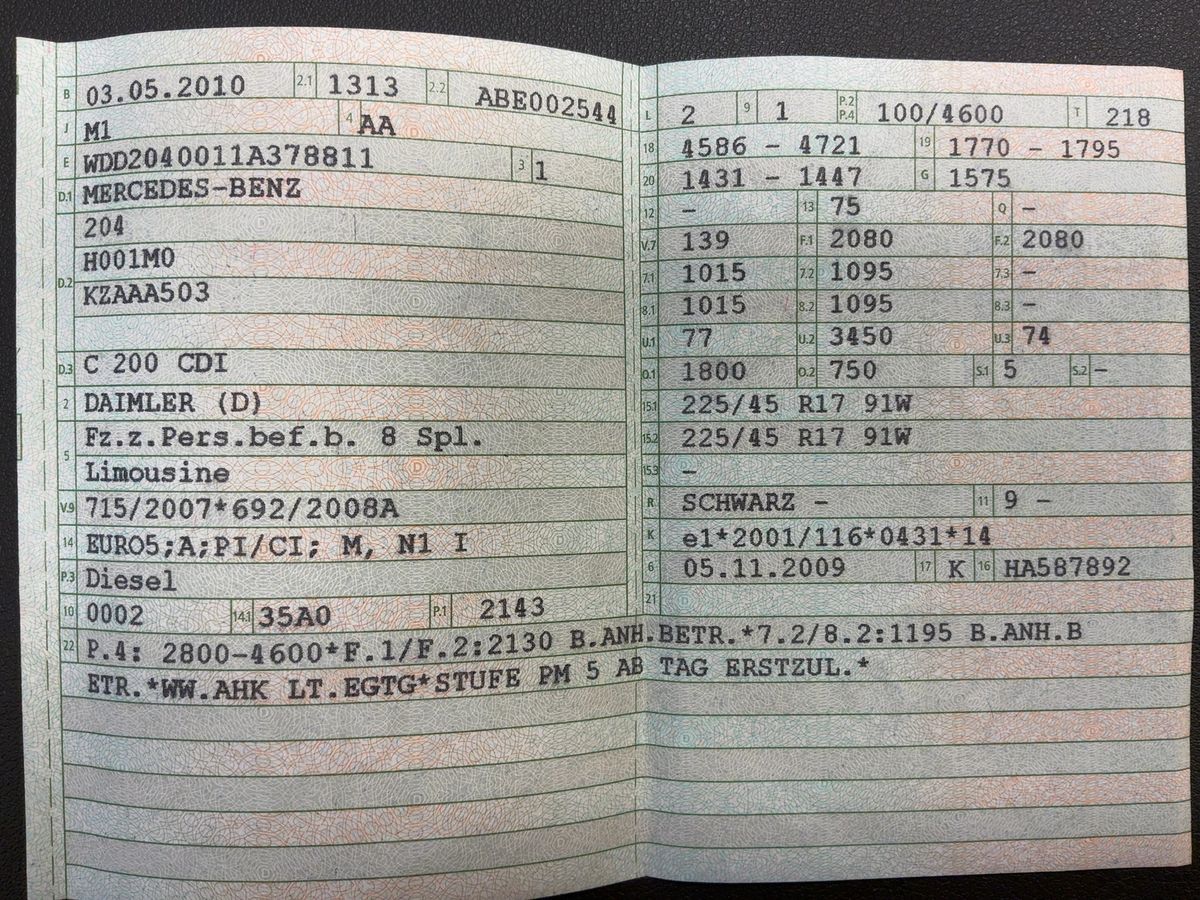 B 03.05.2010 2.1 1313 2.2 ABE002544
J M1 4 AA
E WDD2040011A378811 3 1
D.1 MERCEDES-BENZ
204
D.2 H001M0
KZAAA503
D.3 C 200 CDI
2 DAIMLER (D)
5 Fz.z.Pers.bef.b. 8 Spl.
Limousine
V.9 715/2007*692/2008A
14 EURO5;A;PI/CI; M, N1 I
P.3 Diesel
10 0002 14.1 35A0 P.1 2143
L 2 9 1 P.2 P.4 100/4600 T 218
18 4586 - 4721 19 1770 - 1795
20 1431 - 1447 G 1575
12 - 13 75 Q -
V.7 139 F.1 2080 F.2 2080
7.1 1015 7.2 1095 7.3 -
8.1 1015 8.2 1095 8.3 -
U.1 77 U.2 3450 U.3 74
O.1 1800 O.2 750 S.1 5 S.2 -
15.1 225/45 R17 91W
15.2 225/45 R17 91W
15.3 -
R SCHWARZ - 11 9 -
K e1*2001/116*0431*14
6 05.11.2009 17 K 16 HA587892
21
22 P.4: 2800-4600*F.1/F.2:2130 B.ANH.BETR.*7.2/8.2:1195 B.ANH.B
ETR.*WW.AHK LT.EGTG*STUFE PM 5 AB TAG ERSTZUL.*